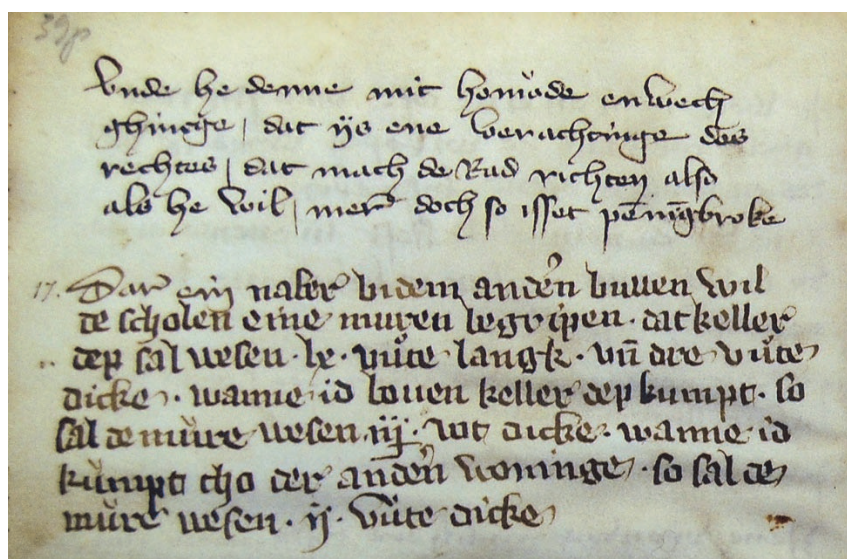 39p
vnde he denne mit homůde enwech
ghincge / dat ÿs ene verachtinge des
rechtes / dat mach de Rad richten also
als he wil / mer doch so isset pēnīgbroke
17. Dar ein naber bi dem andern buwen wil
de scholen eine muren begripen · dat keller
dep sal wesen · lx · vůte langk · vn̄ dre vůte
dicke · wanne id bouen keller dep kumpt · so
sal de můre wesen · iij · vot dicke · wanne id
kůmpt tho der andern woninge · so sal de
můre wesen · ij · vůte dicke